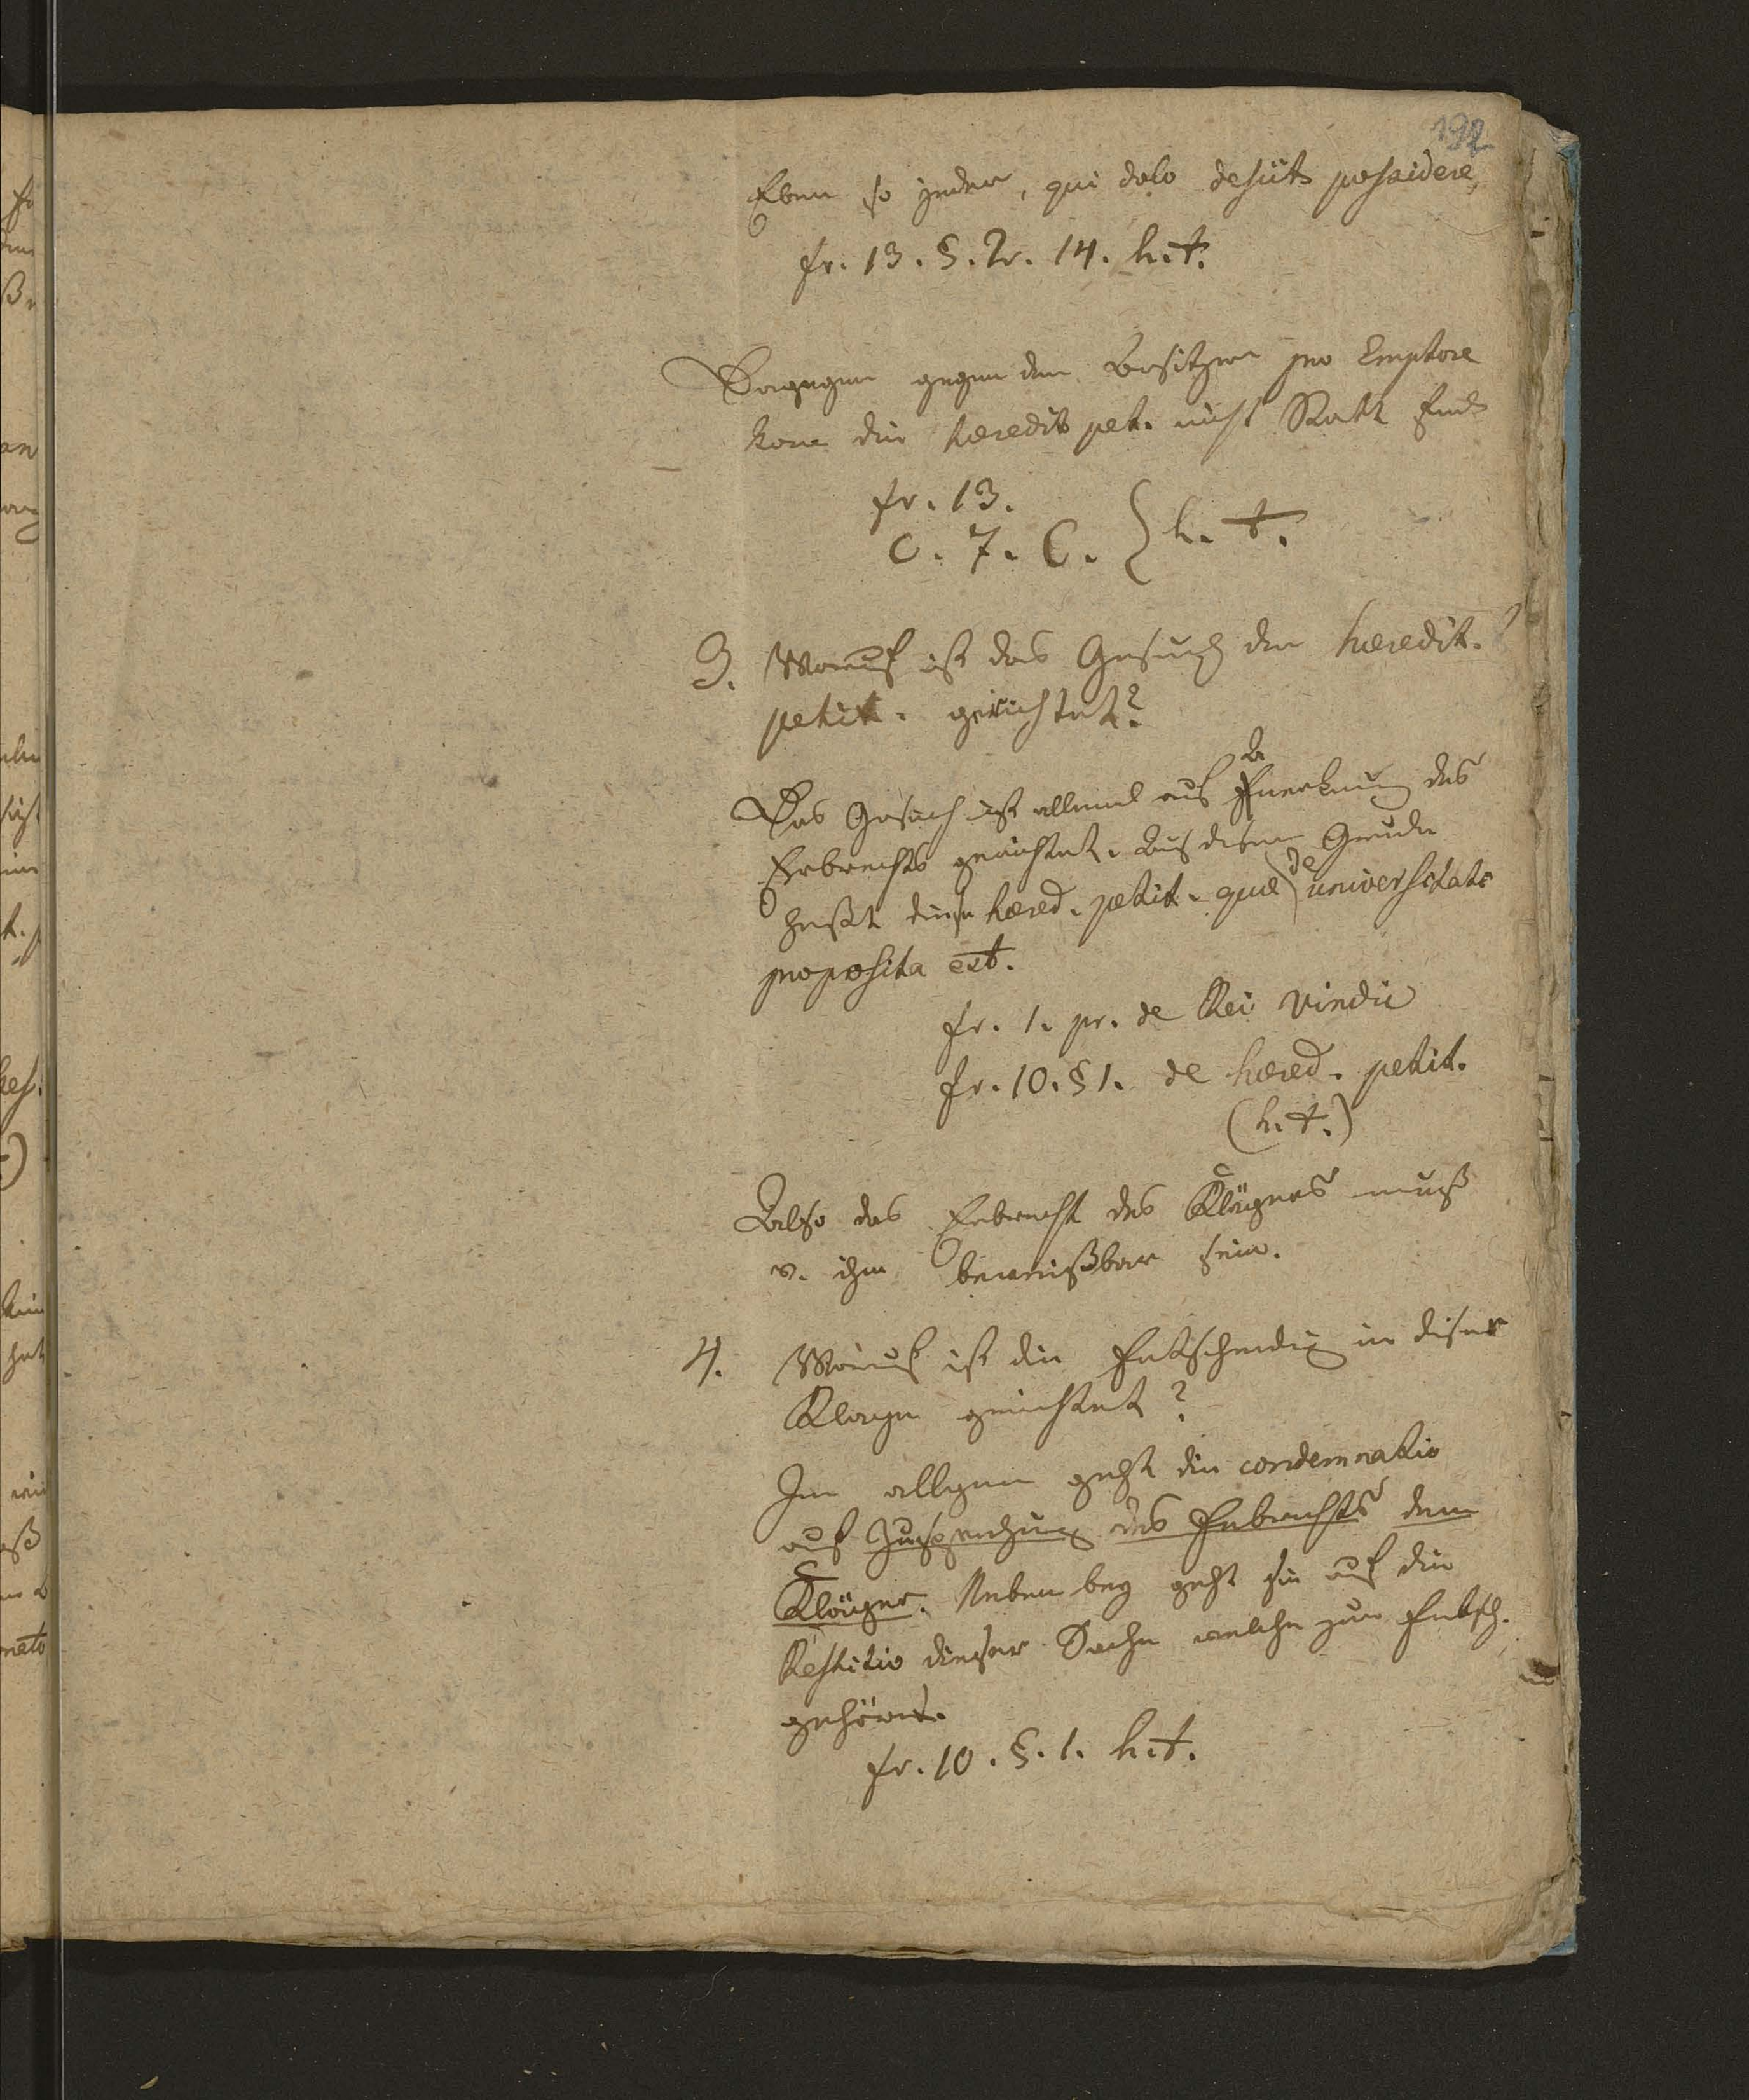 192
Eben so jeder, qui dolo desiit possidere,
fr. 13. §. 2r. 14. h. t.
Dagegen gegen den Besitzer pro Emptore
kan die heredit pet. nicht Statt find
fr. 13.
c. 7. C. } h. t.
3. Worauf ist das Gesuch der heredit.
petit. gerichtet?
Das Gesuch ist allemal auf Anerkenung des
Erbrechts gerichtet. Aus disem Grunde
heßt diese hered. petit. quae de universitate
proposita est.
fr. 1. pr. de Rei vindic
fr. 10. § 1. de hered. petit.
(h. t.)
Also das Erbrecht des Klägers muß
v. ihm beweißbar sein.
4. Worauf ist die Entscheidung in diser
Klage gerichtet?
Im allgem geht die condemnatio
auf Zusprechung des Erbrechts dem
Kläger. Neben bey geht sie auf die
Restitio dieser Sache welche zur Erbsch.
gehören.
fr. 10. §. 1. h. t.